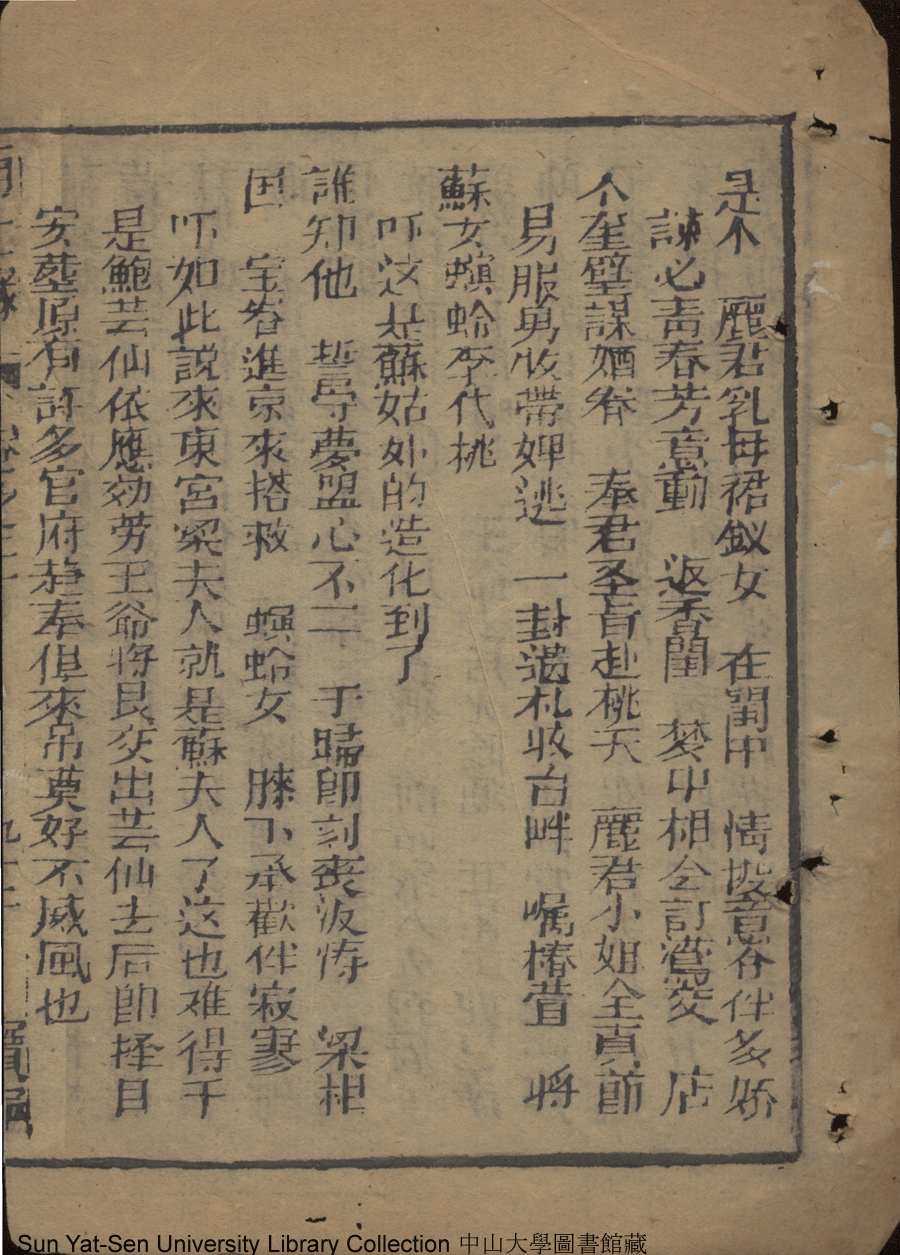 是不　麗君乳母裙釵女　在閨中　情投意合伴多嬌
諫必青春芳意動　返香閨　夢中相会訂鸞交　店
不奎璧謀婚眷　奉君圣旨赴桃夭　麗君小姐全貞節
易服男妝帶婢逃　一封遺札收台畔　囑椿萱　將
蘇女螟蛉李代桃
吓这是蘇姑外的造化到了
誰知他　誓守夢盟心不二　于歸卽刻喪波涛　梁相
国　宝眷進京來搭救　螟蛉女　膝下承歡伴寂寥
吓如此説來東宮梁夫人就是蘇夫人了这也难得干
是鮑芸仙依應効劳王爺將艮交出芸仙去后卽择日
安塟原有許多官府趋奉俱來吊奠好不威風也
九十